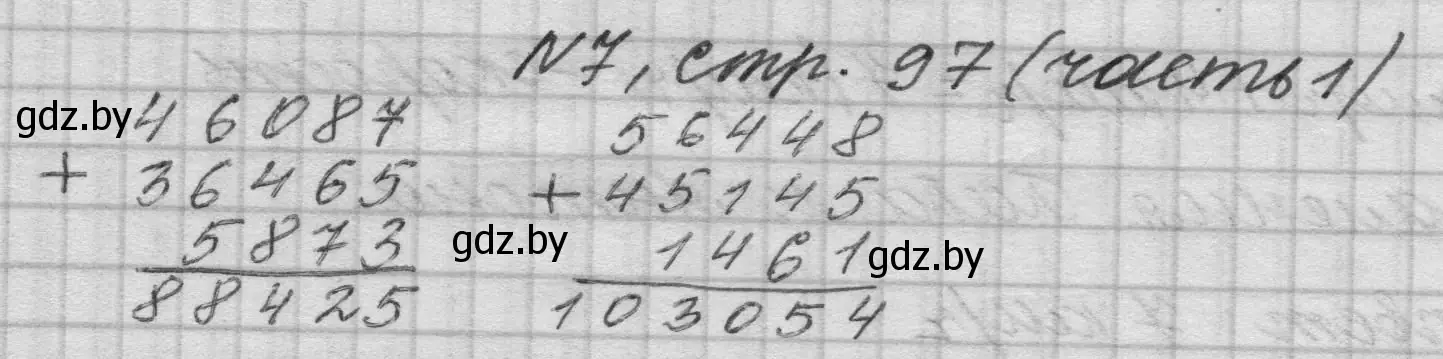 N7, стр. 97 (часть 1)
gdz.by 46087
+ 36465
5873
88425
56448
+ 45145
gdz.by 1461 gdz.by
103054